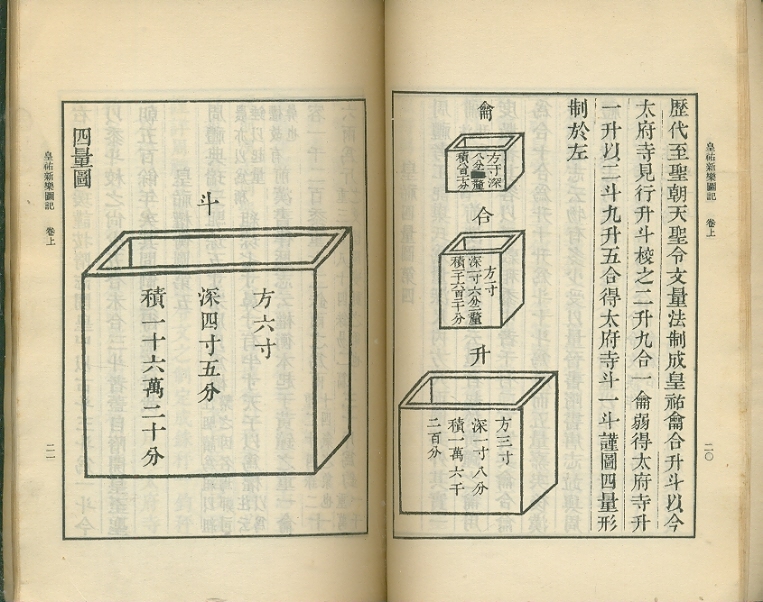 皇祐新樂圖記 卷上 二〇
歷代至聖朝天聖令文量法制成皇祐龠合升斗以今
太府寺見行升斗校之二升九合一龠弱得太府寺升
一升以二斗九升五合得太府寺斗一斗謹圖四量形
制於左
龠
方寸深
八分釐
積八百十分
合
方一寸
深一寸六分二釐
積一千六百二十分
升
方三寸
深一寸八分
積一萬六千
二百分
斗
方六寸
深四寸五分
積一十六萬二十分
四量圖
皇祐新樂圖記 卷上 二一